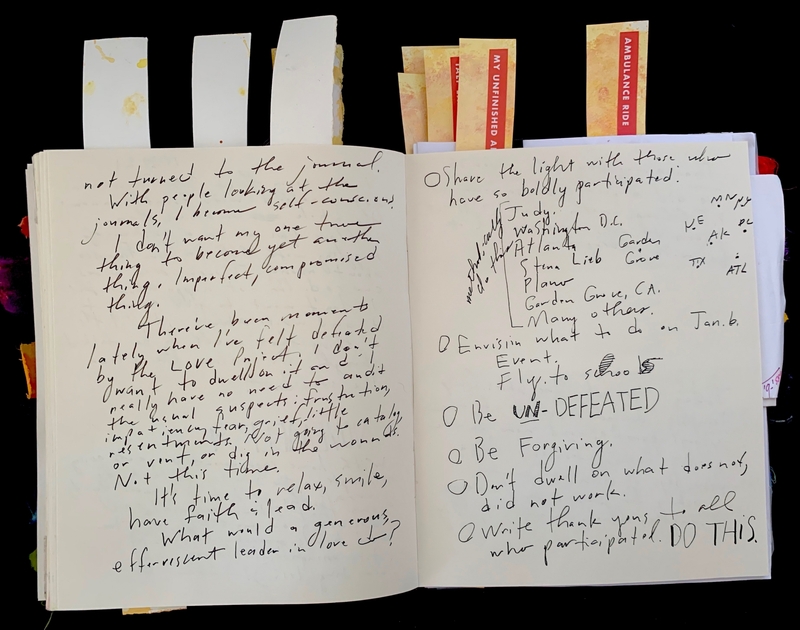 MY UNFINISHED A
AMBULANCE RIDE
not turned to the journal.
With people looking at the
journals, I become self-conscious
I don't want my one true
thing to become yet another
thing. Imperfect, compromised
thing.
There've been moments
lately when I've felt defeated
by the Love Project. I don't
want to dwell on it and I
really have no need to audit
the usual suspects: frustration,
impatience, fear, grief, little
resentments. Not going to catalog
or vent, or dig in the wounds.
Not this time.
It's time to relax, smile,
have faith & lead.
What would a generous,
effervescent leader in love do?
Share the light with those who
have so boldly participated.
methodically
do this
Judy.
Washington D.C.
Atlanta
Stena Lieb
Plano
Garden Grove, CA.
Many others.
Garden
Grove
MN
NY
NE
AK
DC
TX
ATL
Envision what to do on Jan. 6.
Event.
Fly to schools
Be UN-DEFEATED
Be Forgiving.
Don't dwell on what does not,
did not work.
Write thank yous to all
who participated. DO THIS.